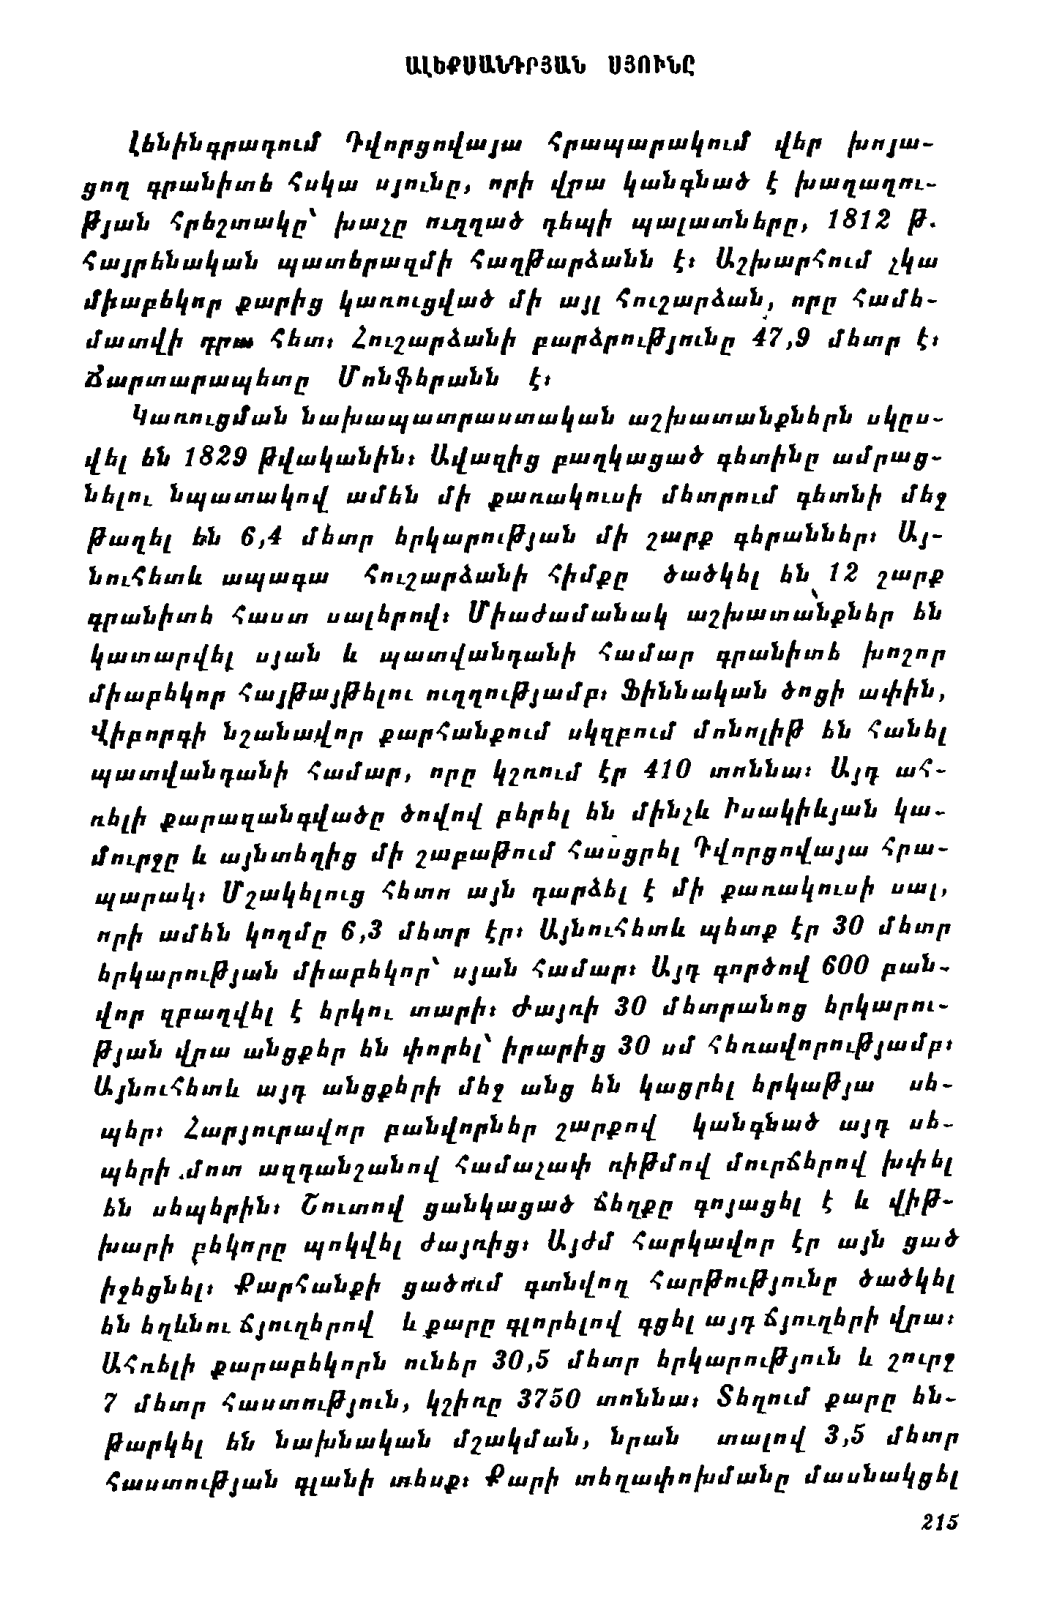 ԱԼԵՔՍԱՆԴՐՅԱՆ ՍՅՈՒՆԸ
Լենինգրադում Դվորցովայա հրապարակում վեր խոյա-
ցող գրանիտե հսկա սյունը, որի վրա կանգնած է խաղաղու-
թյան հրեշտակը՝ խաչը ուղղած դեպի պալատները, 1812 թ.
հայրենական պատերազմի հաղթարձանն է։ Աշխարհում չկա
միաբեկոր քարից կառուցված մի այլ հուշարձան, որը համե-
մատվի դրա հետ։ Հուշարձանի բարձրությունը 47,9 մետր է։
Ճարտարապետը Մոնֆերանն է։
Կառուցման նախապատրաստական աշխատանքներն սկըս-
վել են 1829 թվականին։ Ավազից բաղկացած գետինը ամրաց-
նելու նպատակով ամեն մի քառակուսի մետրում գետնի մեջ
թաղել են 6,4 մետր երկարության մի շարք գերաններ։ Այ-
նուհետև ապագա հուշարձանի հիմքը ծածկել են 12 շարք
գրանիտե հաստ սալերով։ Միաժամանակ աշխատանքներ են
կատարվել սյան և պատվանդանի համար գրանիտե խոշոր
միաբեկոր հայթայթելու ուղղությամբ։ Ֆիննական ծոցի ափին,
Վիբորգի նշանավոր քարհանքում սկզբում մոնոլիթ են հանել
պատվանդանի համար, որը կշռում էր 410 տոննա։ Այդ ահ-
ռելի քարազանգվածը ծովով բերել են մինչև Իսակիևյան կա-
մուրջը և այնտեղից մի շաբաթում հասցրել Դվորցովայա հրա-
պարակ։ Մշակելուց հետո այն դարձել է մի քառակուսի սալ,
որի ամեն կողմը 6,3 մետր էր։ Այնուհետև պետք էր 30 մետր
երկարության միաբեկոր՝ սյան համար։ Այդ գործով 600 բան-
վոր զբաղվել է երկու տարի։ Ժայռի 30 մետրանոց երկարու-
թյան վրա անցքեր են փորել՝ իրարից 30 սմ հեռավորությամբ։
Այնուհետև այդ անցքերի մեջ անց են կացրել երկաթյա սե-
պեր։ Հարյուրավոր բանվորներ շարքով կանգնած այդ սե-
պերի մոտ ազդանշանով համաչափ ռիթմով մուրճերով խփել
են սեպերին։ Շուտով ցանկացած ճեղքը գոյացել է և վիթ-
խարի բեկորը պոկվել ժայռից։ Այժմ հարկավոր էր այն ցած
իջեցնել։ Քարհանքի ցածում գտնվող հարթությունը ծածկել
են եղևնու ճյուղերով և քարը գլորելով գցել այդ ճյուղերի վրա։
Ահռելի քարաբեկորն ուներ 30,5 մետր երկարություն և շուրջ
7 մետր հաստություն, կշիռը 3750 տոննա։ Տեղում քարը են-
թարկել են նախնական մշակման, նրան տալով 3,5 մետր
հաստության գլանի տեսք։ Քարի տեղափոխմանը մասնակցել
215